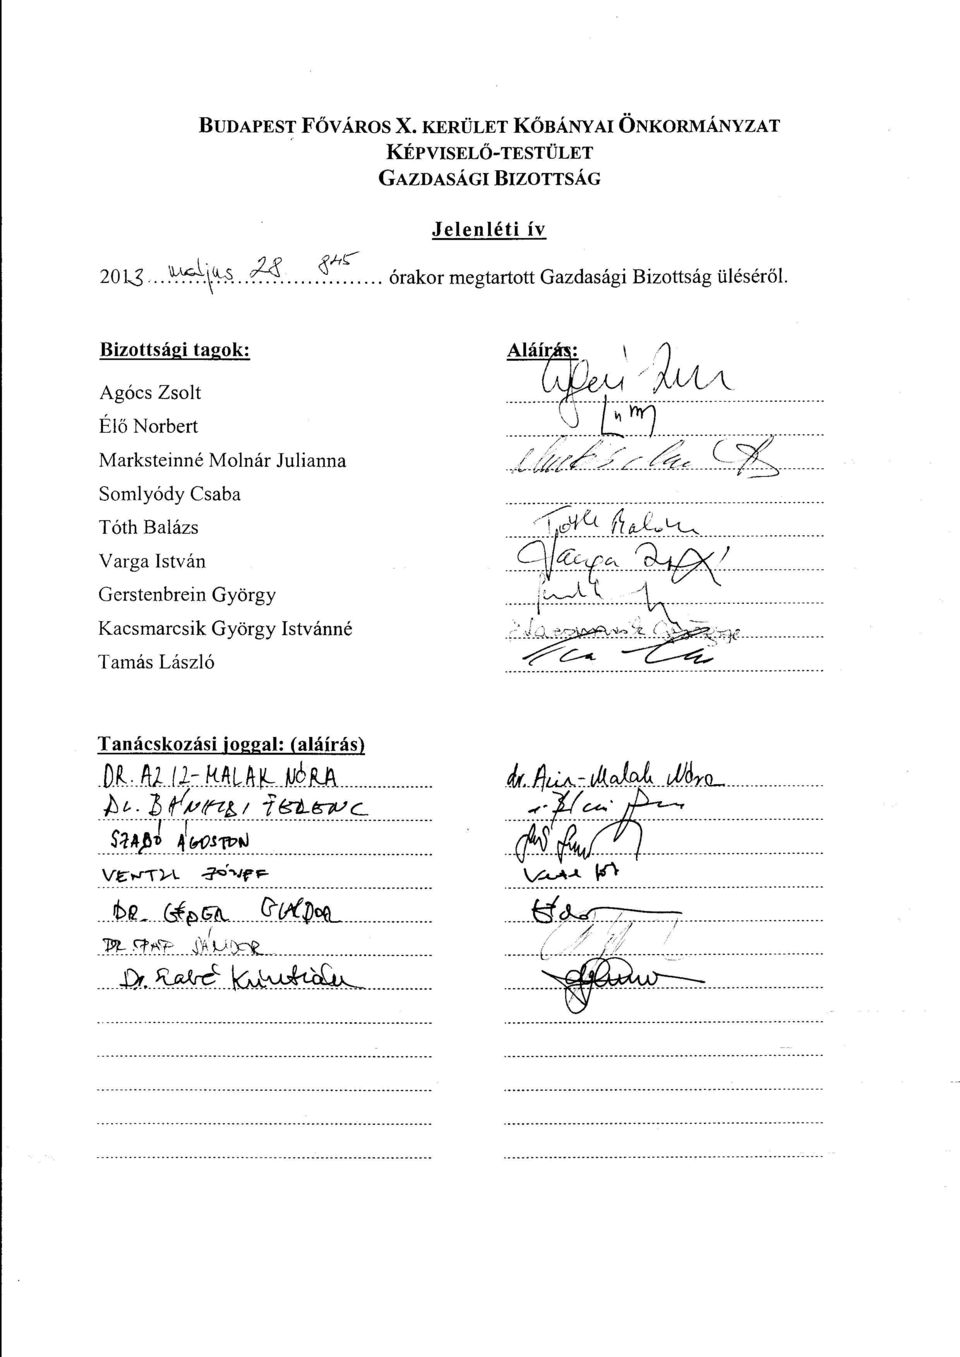 BUDAPEST FŐVÁROS X. KERÜLET KŐBÁNYAI ÖNKORMÁNYZAT
KÉPVISELŐ-TESTÜLET
GAZDASÁGI BIZOTTSÁG
Jelenléti ív
2013... május 28 8 45 ... órakor megtartott Gazdasági Bizottság üléséről.
Bizottsági tagok: Aláírás:
Agócs Zsolt
Élő Norbert
Marksteinné Molnár Julianna
Somlyódy Csaba
Tóth Balázs Tóth Balázs
Varga István Varga
Gerstenbrein György
Kacsmarcsik György Istvánné
Tamás László
Tanácskozási joggal: (aláírás)
DR. AZIZ-MALAK NÓRA dr. Aziz-Malak Nóra
FERENC
SZABÓ ÁGOSTON
JÓZSEF
DR.
DR. SÁNDOR
Dr. Rabé Krisztián